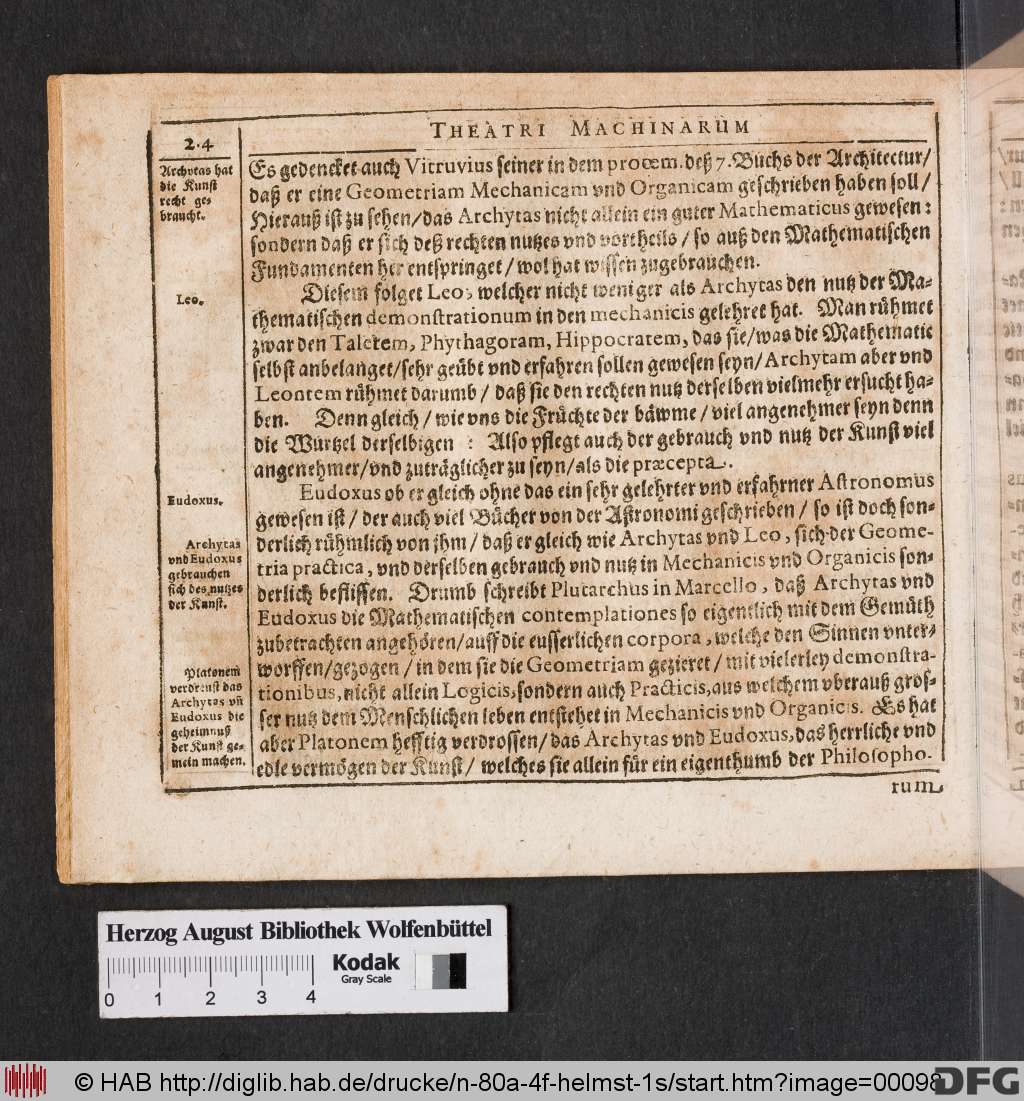 2.4
THEATRI MACHINARUM
Archytas hat
die Kunst
recht ge-
braucht.
Es gedencket auch Vitruvius seiner in dem proœm. deß 7. Buchs der Architectur/
daß er eine Geometriam Mechanicam vnd Organicam geschrieben haben soll/
Hierauß ist zu sehen/das Archytas nicht allein ein guter Mathematicus gewesen:
sondern daß er sich deß rechten nutzes vnd vortheils/so auß den Mathematischen
Fundamenten her entspringet/wol hat wissen zugebrauchen.
Leo.
Diesem folget Leo, welcher nicht weniger als Archytas den nutz der Ma-
thematischen demonstrationum in den mechanicis gelehret hat. Man rühmet
zwar den Taletem, Phythagoram, Hippocratem, das sie/was die Mathematic
selbst anbelanget/sehr geübt vnd erfahren sollen gewesen seyn/Archytam aber vnd
Leontem rühmet darumb/daß sie den rechten nutz derselben vielmehr ersucht ha-
ben. Denn gleich/wie vns die Früchte der bäwme/viel angenehmer seyn denn
die Wurtzel derselbigen: Also pflegt auch der gebrauch vnd nutz der Kunst viel
angenehmer/vnd zuträglicher zu seyn/als die præcepta.
Eudoxus.
Eudoxus ob er gleich ohne das ein sehr gelehrter vnd erfahrner Astronomus
gewesen ist/der auch viel Bücher von der Astronomi geschrieben/so ist doch son-
derlich rühmlich von jhm/daß er gleich wie Archytas vnd Leo, sich der Geome-
tria practica, vnd derselben gebrauch vnd nutz in Mechanicis vnd Organicis son-
derlich beflissen. Drumb schreibt Plutarchus in Marcello, daß Archytas vnd
Eudoxus die Mathematischen contemplationes so eigentlich mit dem Gemüth
zubetrachten angehören/auff die eusserlichen corpora, welche den Sinnen vnter-
worffen/gezogen/in dem sie die Geometriam gezieret/mit vielerley demonstra-
tionibus, nicht allein Logicis, sondern auch Practicis, aus welchem vberauß gros-
ser nutz dem Menschlichen leben entstehet in Mechanicis vnd Organicis. Es hat
aber Platonem hefftig verdrossen/das Archytas vnd Eudoxus, das herrliche vnd
edle vermögen der Kunst/welches sie allein für ein eigenthumb der Philosopho-
rum
Archytas
vnd Eudoxus
gebrauchen
sich des nutzes
der Kunst.
Platonem
verdreust das
Archytas vñ
Eudoxus die
geheimnuß
der Kunst ge-
mein machen.
Herzog August Bibliothek Wolfenbüttel
Kodak
Gray Scale
0 1 2 3 4
© HAB http://diglib.hab.de/drucke/n-80a-4f-helmst-1s/start.htm?image=00098
DFG